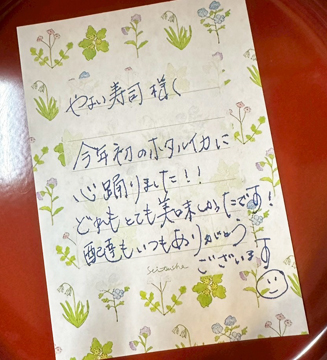 やよい寿司様く
今年初のホタルイカに
心踊りました!!
どれもとても美味しかったです!
配達もいつもありがとう
ございます